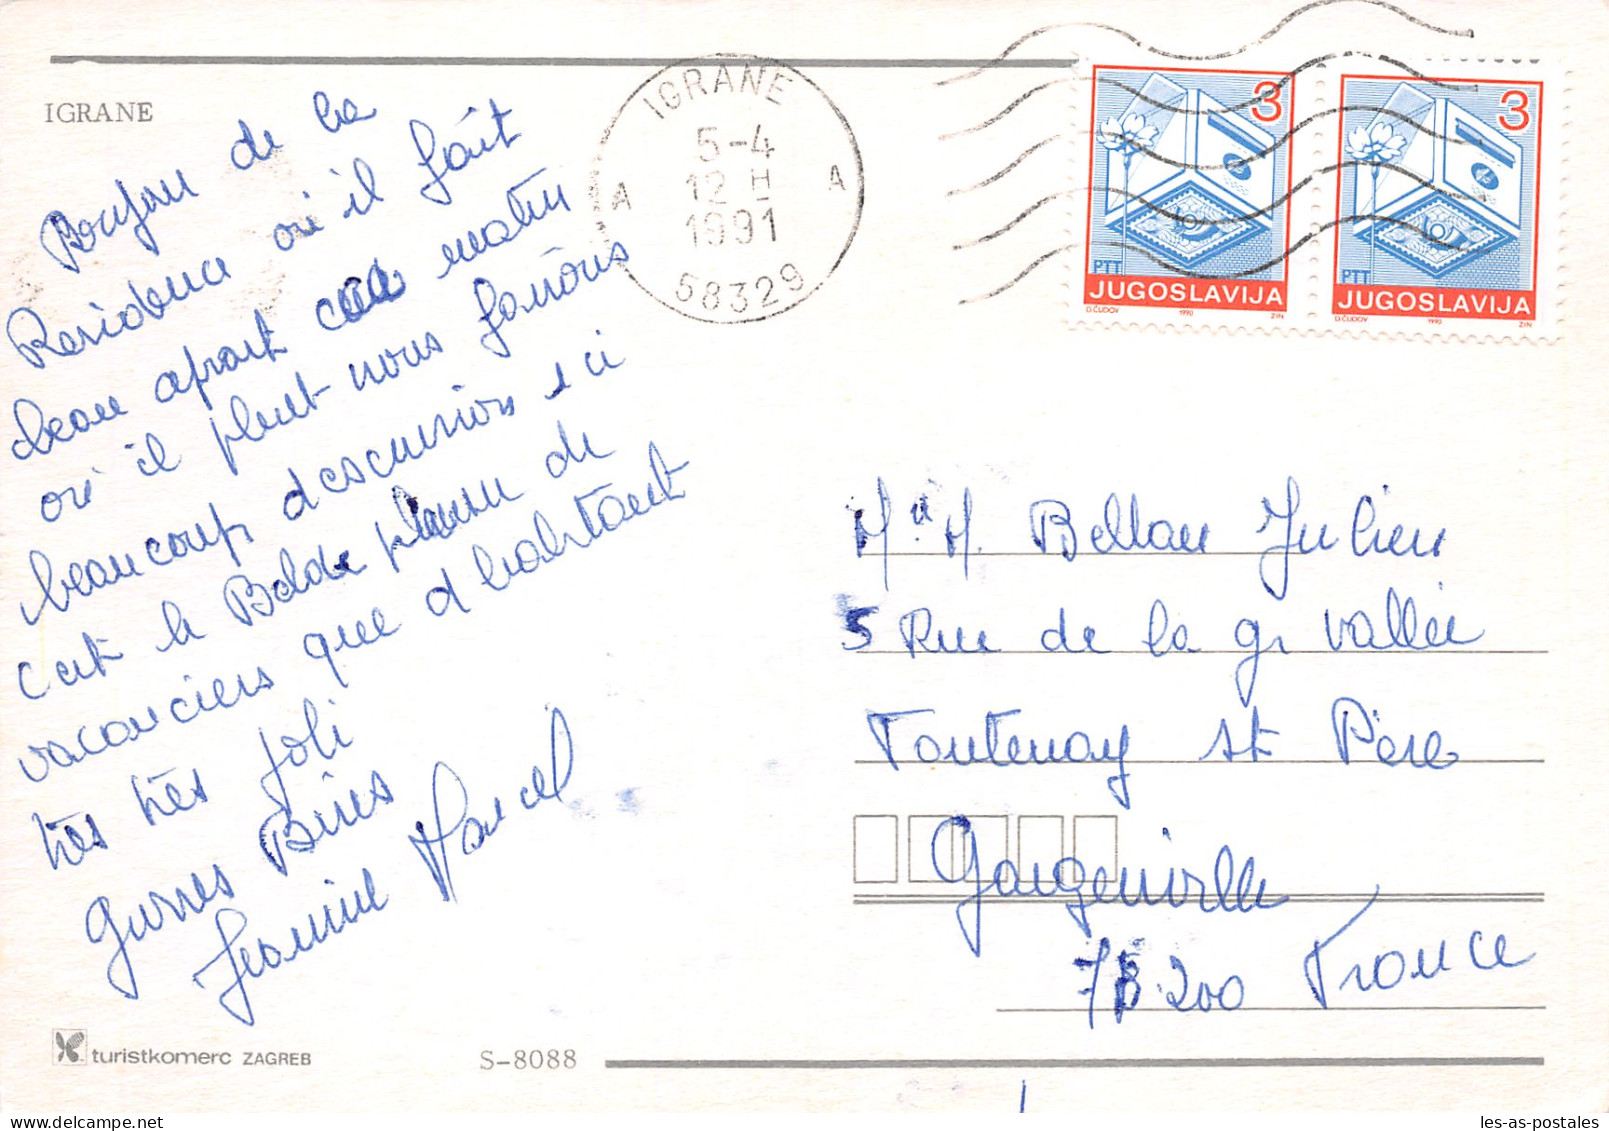 IGRANE
Bonjour de la
Residence où il fait
beau apart ce matin
où il pleut nous faisons
beaucoup descursion ici
cest la Balade de
vacanciers que d habitant
très très joli
Gurses Bises
Jeannine Marcel
IGRANE
5-4
12 H
1991
A A
58329
3
PTT
JUGOSLAVIJA
D.ČUDOV 1990 ZIN
3
PTT
JUGOSLAVIJA
D.ČUDOV 1990 ZIN
M. Bellau Julien
5 Rue de la gr vallée
Fontenay st Père
Gargenville
78200 France
turistkomerc ZAGREB
S-8088
les-as-postales